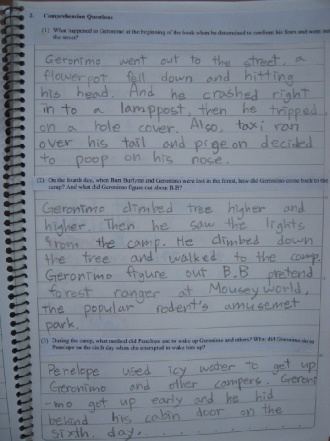 2. Comprehension Questions
(1) What happened to Geronimo at the beginning of the book when he determined to confront his fears and went out
the street?
Geronimo went out to the street, a
flowerpot fell down and hitting
his head. And he crashed right
in to a lamppost, then he tripped
on a hole cover. Also, taxi ran
over his tail and pigeon decided
to poop on his nose.
(2) On the fourth day, when Bart Burlyfur and Geronimo were lost in the forest, how did Geronimo come back to the
camp? And what did Geronimo figure out about B.B?
Geronimo climbed tree higher and
higher. Then he saw the lights
from the camp. He climbed down
the tree and walked to the camp.
Geronimo figure out B.B pretend
forest ranger at Mouseyworld,
the popular rodent's amusemet
park.
(3) During the camp, what method did Penelope use to wake up Geronimo and others? Why did Geronimo
Penelope on the sixth day when she attempted to wake him up?
Penelope used icy water to get up
Geronimo and other campers. Geroni
-mo got up early and he hid
behind his cabin door on the
sixth day.